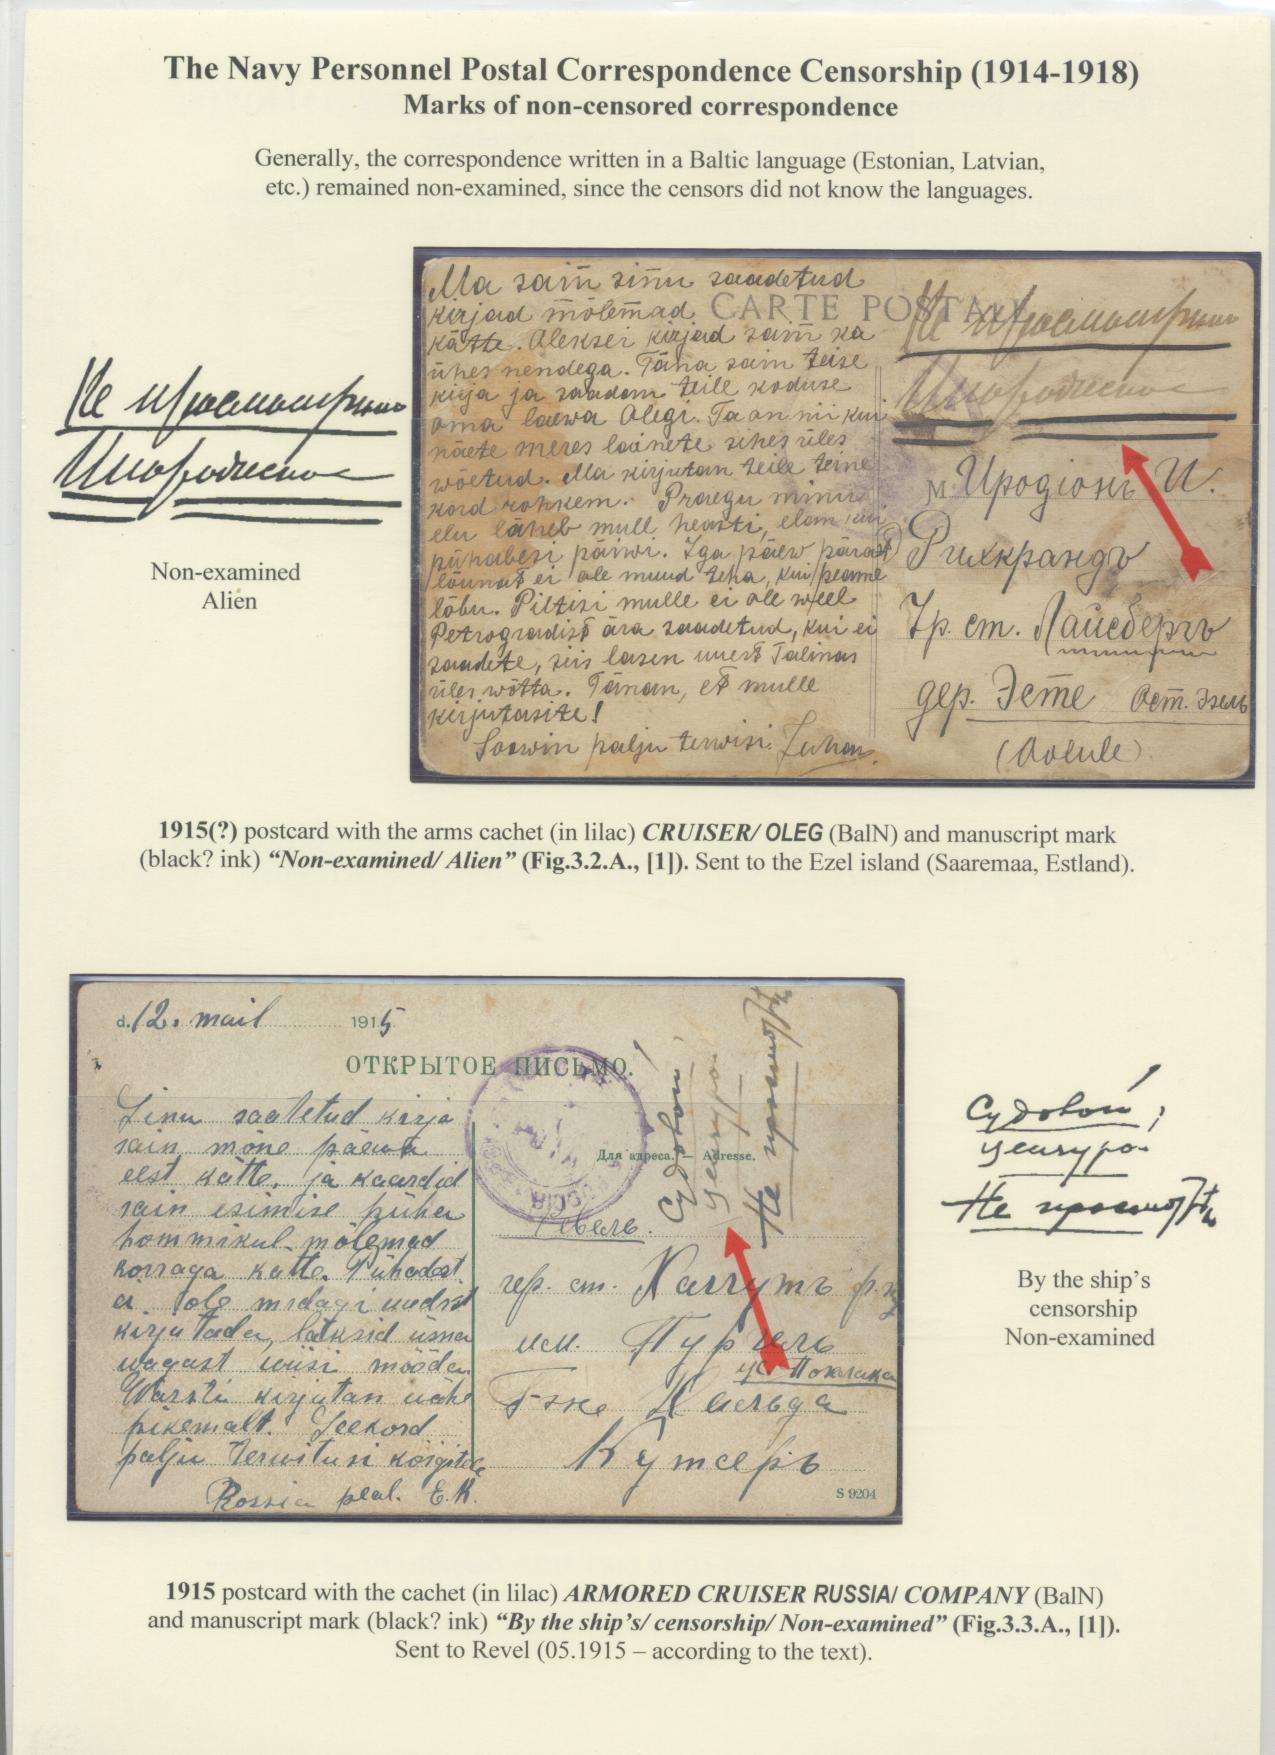 The Navy Personnel Postal Correspondence Censorship (1914-1918)
Marks of non-censored correspondence
Generally, the correspondence written in a Baltic language (Estonian, Latvian,
etc.) remained non-examined, since the censors did not know the languages.
Non-examined
Alien
CARTE POSTA
Ma sain sinu saadetud
kirjad mõlemad
kätte. Aleksei kirjad sain ka
ühes nendega. Täna sain teise
kirja ja saadan teile koduse
oma laewa Olegi. Ta on nii kui
näete meres lainete sihes üles
wõetud. Ma kirjutan teile teine
kord rohkem. Praegu minu
elu läheb mull heasti, elan kui
pühabesi päiwi. Iga päew pärast
lõunat ei ole muud teha, kui peame
lõbu. Piltisi mulle ei ole weel
Petrogradist ära saadetud, kui ei
saadete, siis lasen uuest Talinas
üles wõtta. Tänan, et mulle
kirjutasite!
Soowin palju terwisi. Juhan.
Не просмотрено
Инородческое
м. Иродіонъ И.
Рихкрандъ
Чр. ст. Лайсбергъ
дер. Эсте Ост. Эзель
1915(?) postcard with the arms cachet (in lilac) CRUISER/ OLEG (BalN) and manuscript mark
(black? ink) “Non-examined/ Alien” (Fig.3.2.A., [1]). Sent to the Ezel island (Saaremaa, Estland).
d. 12. mail 1915
ОТКРЫТОЕ ПИСЬМО.
Sinu saaletud kirja
sain mõne päewa
eest kätte, ja kaardid
sain esimise püha
hommikul mõlemad
korraga kätte. Pühadest
ei ole midagi uudist
kirjutada, läksid üsna
wagast wiisi mööda
Warsti kirjutan ühe
pikemalt. Seekord
palju terwitusi kõigitele
Rossia peal. E.K.
Для адреса. — Adresse.
Судовой
цензурой
Не просмотрѣно
Ревель.
чер. ст.
им.
Г-же
Кутсеръ
S 9204
By the ship’s
censorship
Non-examined
1915 postcard with the cachet (in lilac) ARMORED CRUISER RUSSIA/ COMPANY (BalN)
and manuscript mark (black? ink) “By the ship’s/ censorship/ Non-examined” (Fig.3.3.A., [1]).
Sent to Revel (05.1915 – according to the text).